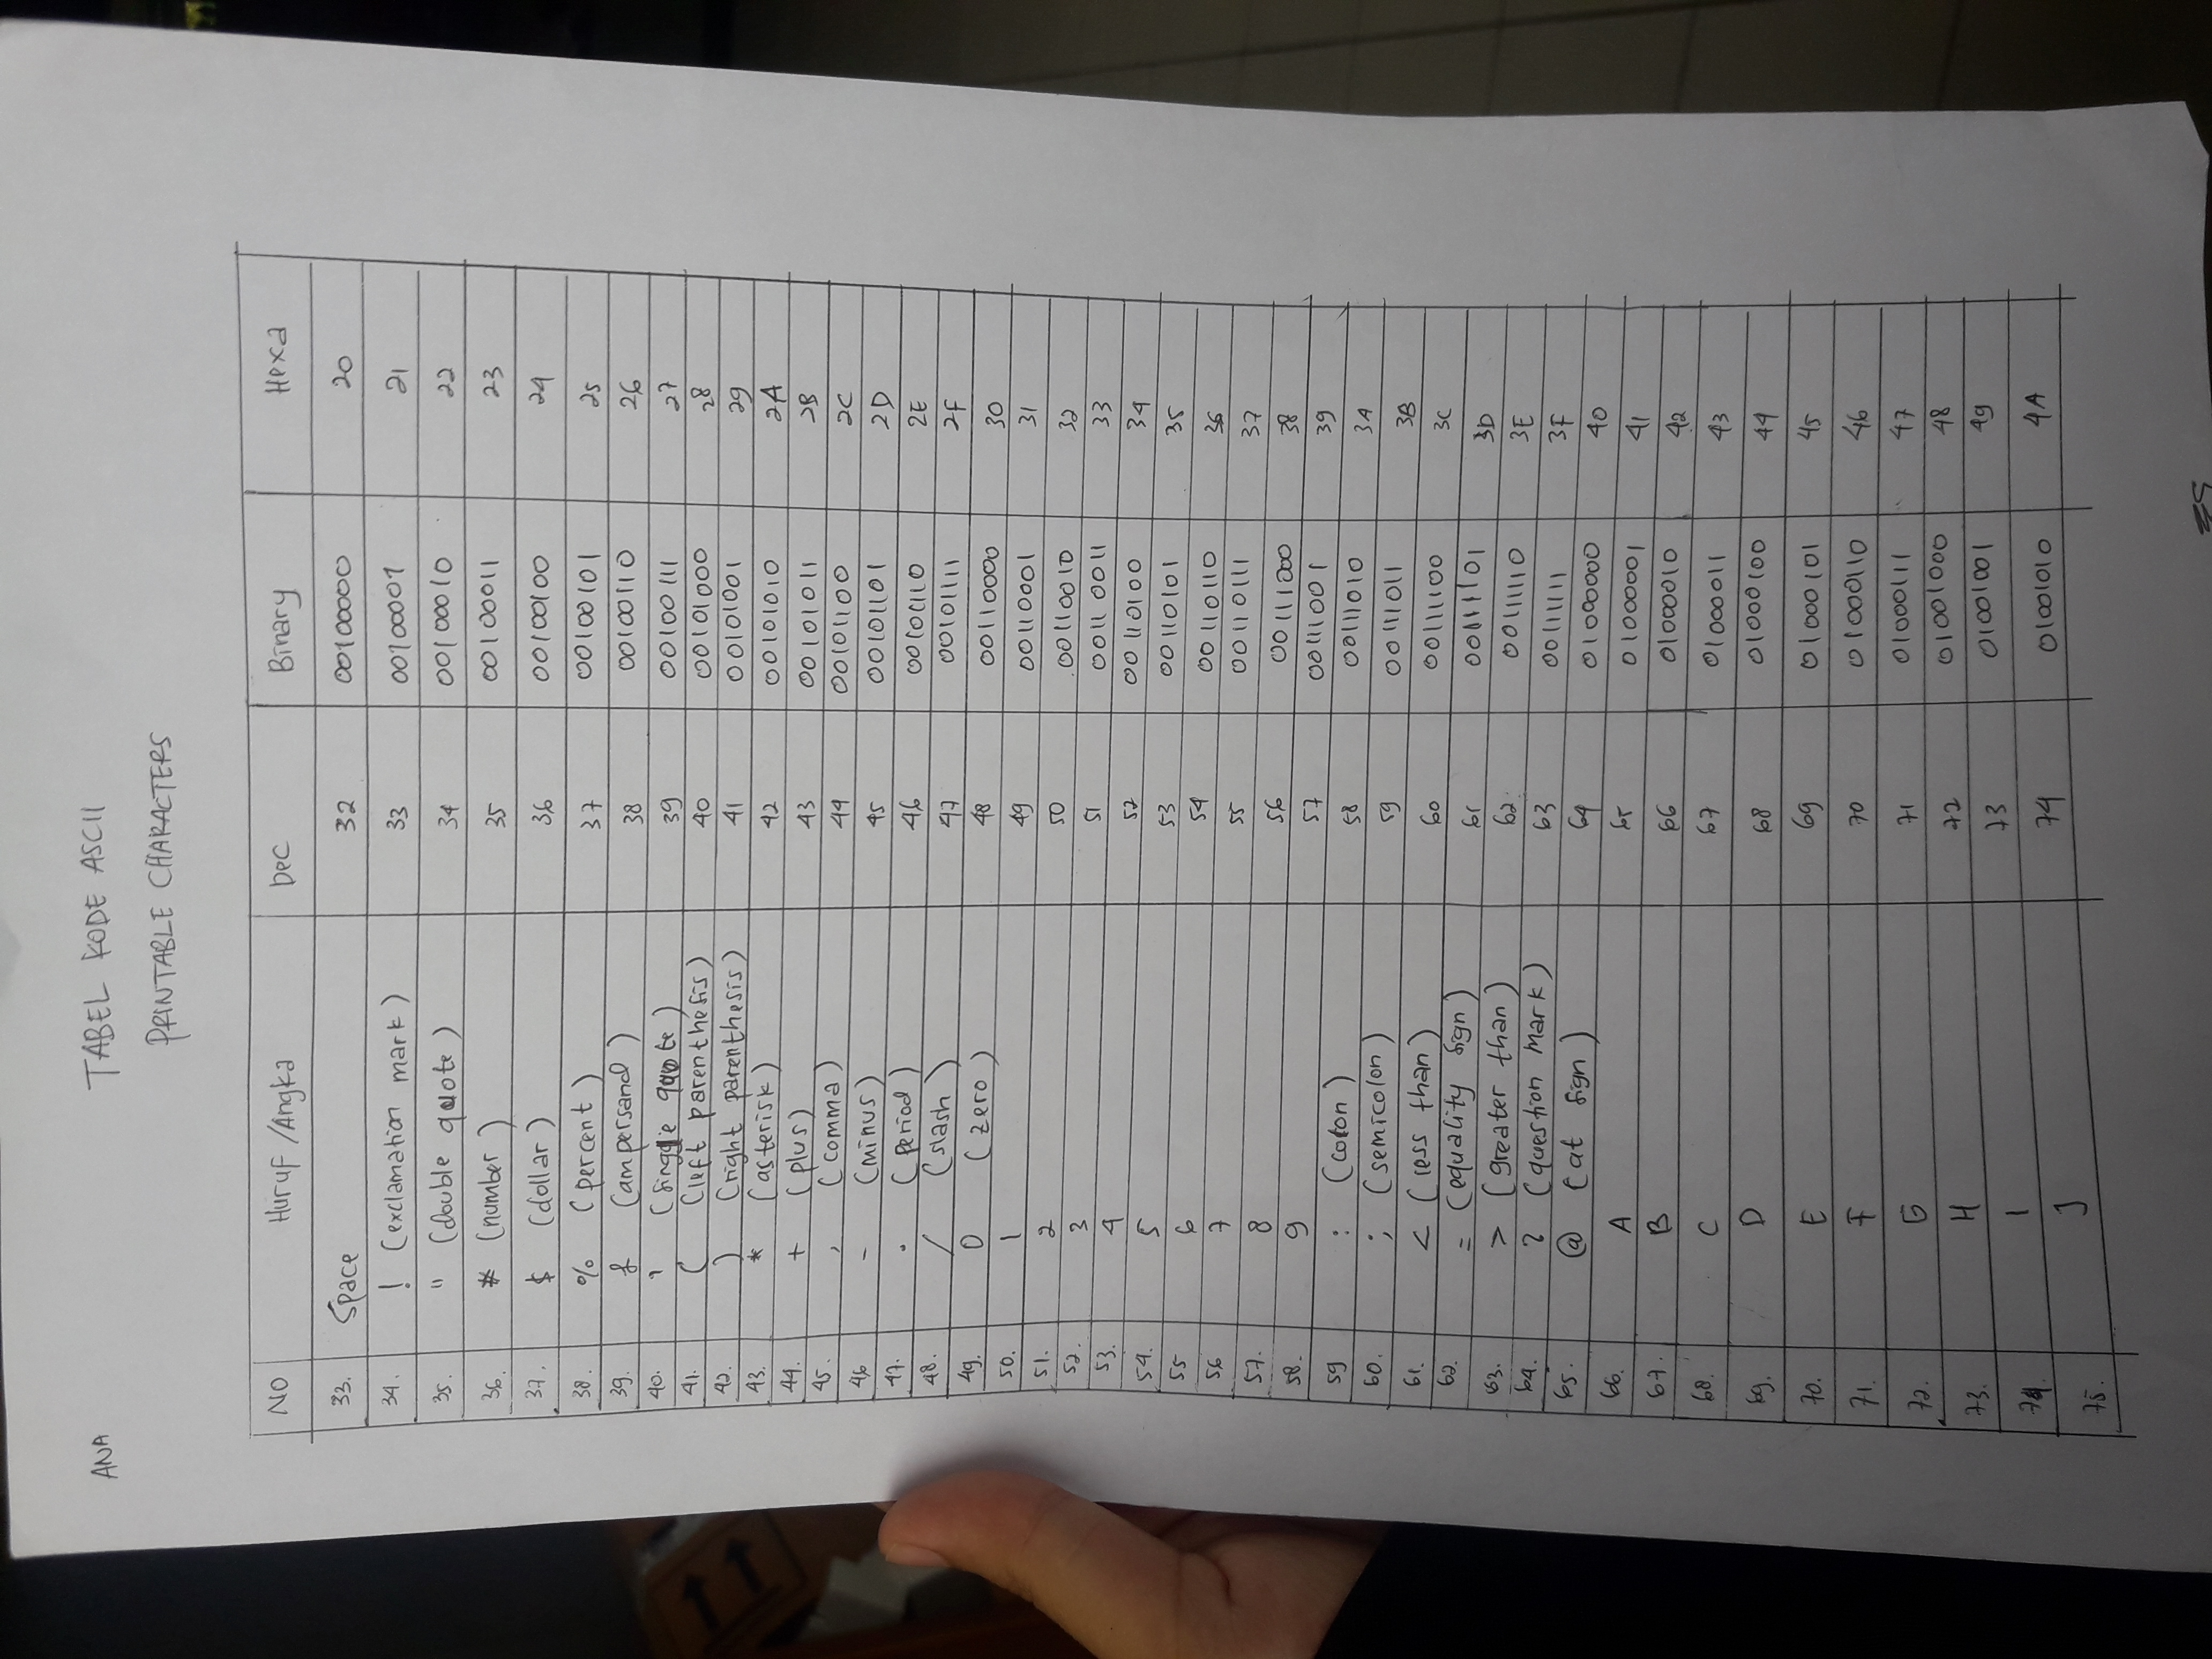 ANA
TABEL KODE ASCII
PRINTABLE CHARACTERS
NO Huruf/Angka Dec Binary Hexa
33. Space 32 00100000 20
34. ! (exclamation mark) 33 00100001 21
35. " (double quote) 34 00100010 22
36. # (number) 35 00100011 23
37. $ (dollar) 36 00100100 24
38. % (percent) 37 00100101 25
39. & (ampersand) 38 00100110 26
40. ' (single quote) 39 00100111 27
41. ( (left parenthesis) 40 00101000 28
42. ) (right parenthesis) 41 00101001 29
43. * (asterisk) 42 00101010 2A
44. + (plus) 43 00101011 2B
45. , (comma) 44 00101100 2C
46 - (minus) 45 00101101 2D
47. . (period) 46 00101110 2E
48. / (slash) 47 00101111 2F
49. 0 (zero) 48 00110000 30
50. 1 49 00110001 31
51. 2 50 00110010 32
52. 3 51 00110011 33
53. 4 52 00110100 34
54. 5 53 00110101 35
55 6 54 00110110 36
56 7 55 00110111 37
57. 8 56 00111000 38
58. 9 57 00111001 39
59 : (colon) 58 00111010 3A
60. ; (semicolon) 59 00111011 3B
61. < (less than) 60 00111100 3C
62. = (equality sign) 61 00111101 3D
63. > (greater than) 62 00111110 3E
64. ? (question mark) 63 00111111 3F
65. @ (at sign) 64 01000000 40
66. A 65 01000001 41
67. B 66 01000010 42
68. C 67 01000011 43
69. D 68 01000100 44
70. E 69 01000101 45
71. F 70 01000110 46
72. G 71 01000111 47
73. H 72 01001000 48
74. I 73 01001001 49
75. J 74 01001010 4A